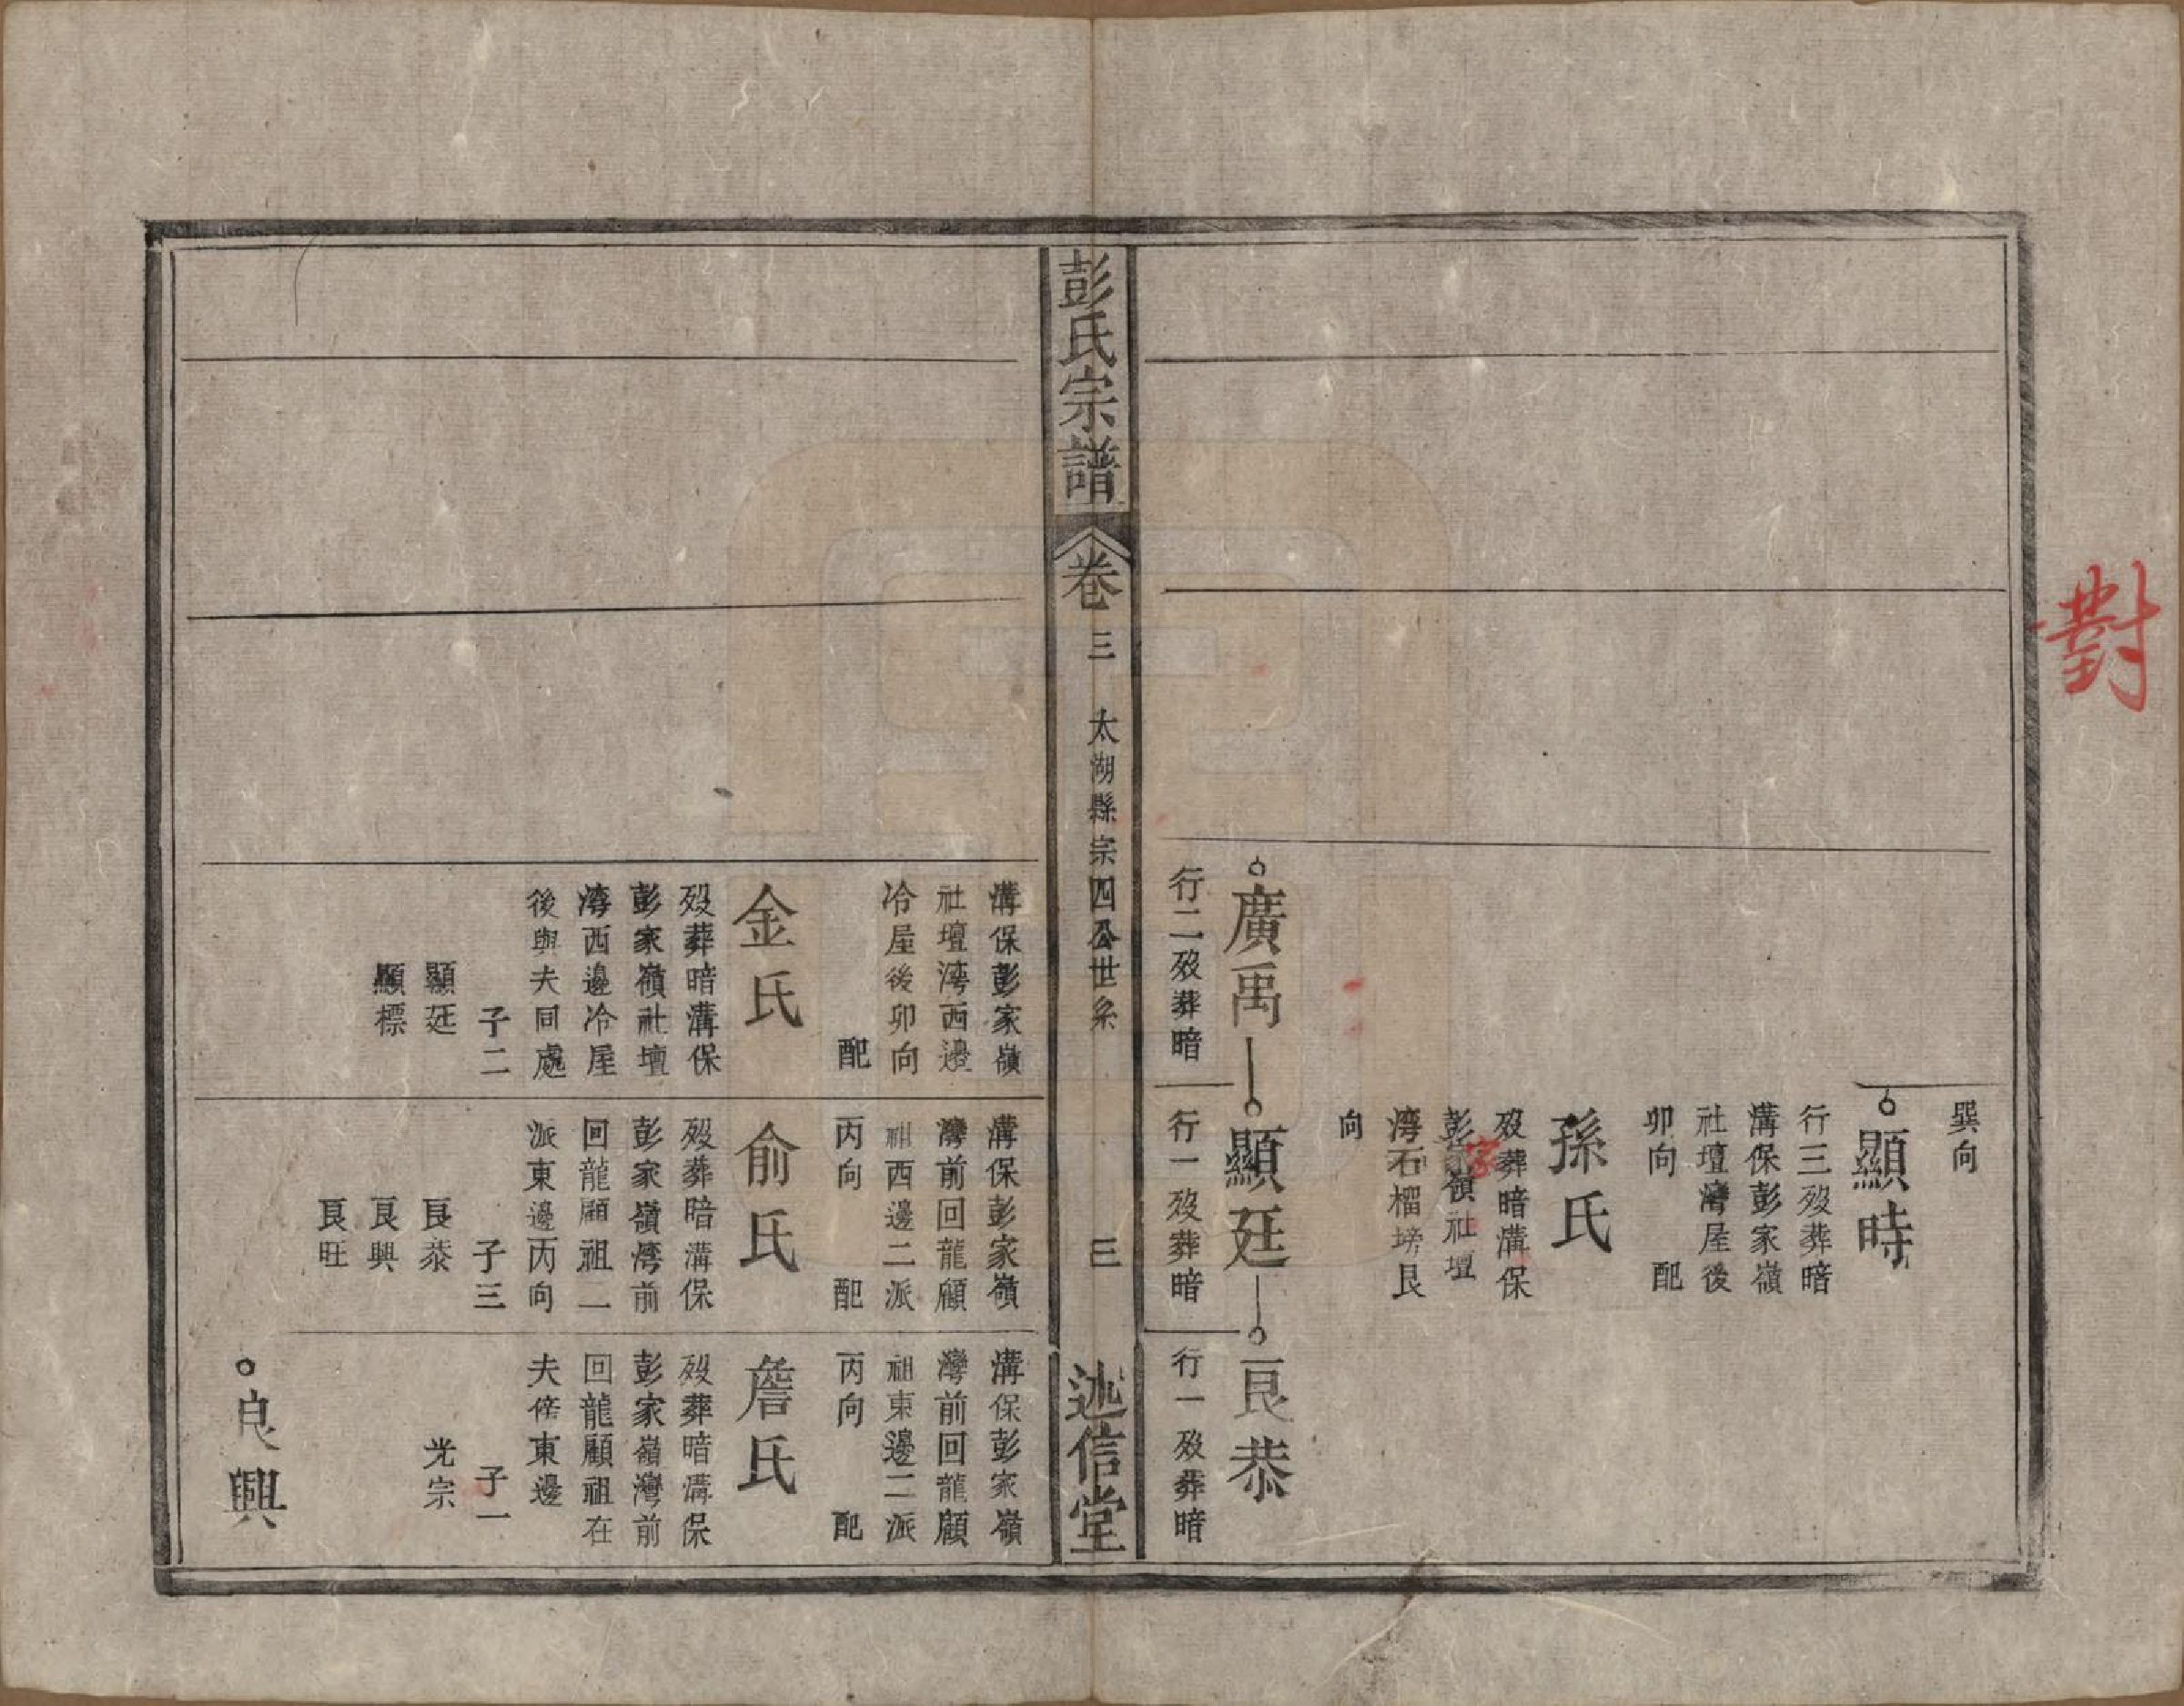 巽向
顯時
行三歿葬暗
溝保彭家嶺
社壇灣屋後
卯向　配
孫氏
歿葬暗溝保
彭家嶺社壇
湾石榴塝艮
向
廣禹
行二歿葬暗
顯廷
行一歿葬暗
良恭
行一歿葬暗
彭氏宗譜
卷三
太湖縣宗四公世系
三
述信堂
溝保彭家嶺
社壇湾西邊
冷屋後卯向
配
金氏
歿葬暗溝保
彭家嶺社壇
湾西邊冷屋
後與夫同處
子二
顯廷
顯標
溝保彭家嶺
灣前回龍顧
祖西邊二派
丙向　配
俞氏
歿葬暗溝保
彭家嶺湾前
回龍顧祖一
派東邊丙向
子三
良恭
良興
良旺
溝保彭家嶺
灣前回龍顧
祖東邊二派
丙向　配
詹氏
歿葬暗溝保
彭家嶺灣前
回龍顧祖在
夫傍東邊
子一
光宗
良興
對